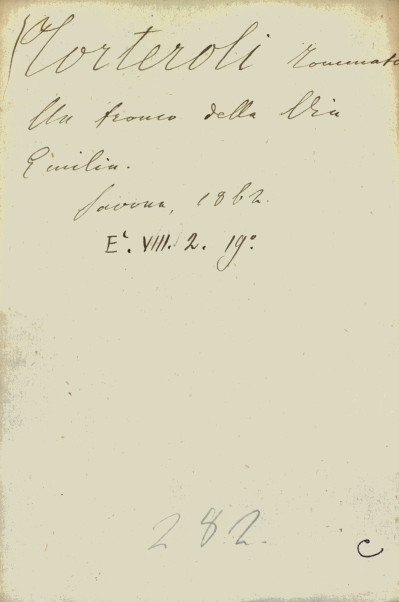 Torteroli Tommaso
Un tronco della Via
Emilia.
Savona, 1862.
E². VIII. 2. 19°
282.
C